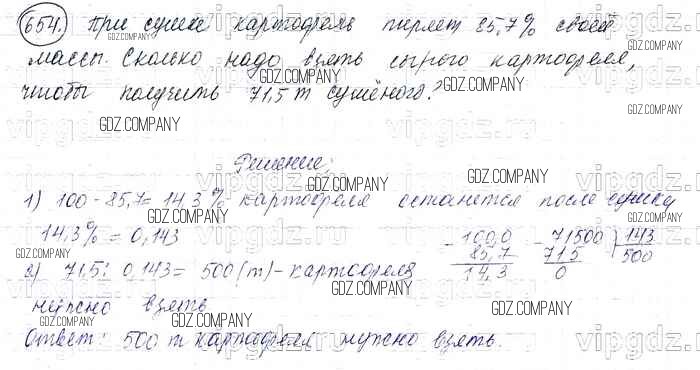 654. При сушке картофель теряет 85,7% своей
массы. Сколько надо взять сырого картофеля,
чтобы получить 71,5 т сушёного?
Решение:
1) 100 - 85,7 = 14,3% картофеля останется после сушки
14,3% = 0,143
2) 71,5 : 0,143 = 500 (т) - картофеля
нужно взять
100,0
- 85,7
14,3
- 71500 | 143
715 500
0
Ответ: 500 т картофеля нужно взять.
GDZ.COMPANY
GDZ.COMPANY
GDZ.COMPANY
GDZ.COMPANY
GDZ.COMPANY
GDZ.COMPANY
GDZ.COMPANY
GDZ.COMPANY
GDZ.COMPANY
GDZ.COMPANY
GDZ.COMPANY
GDZ.COMPANY
GDZ.COMPANY
vipgdz.ru
vipgdz.ru
vipgdz.ru